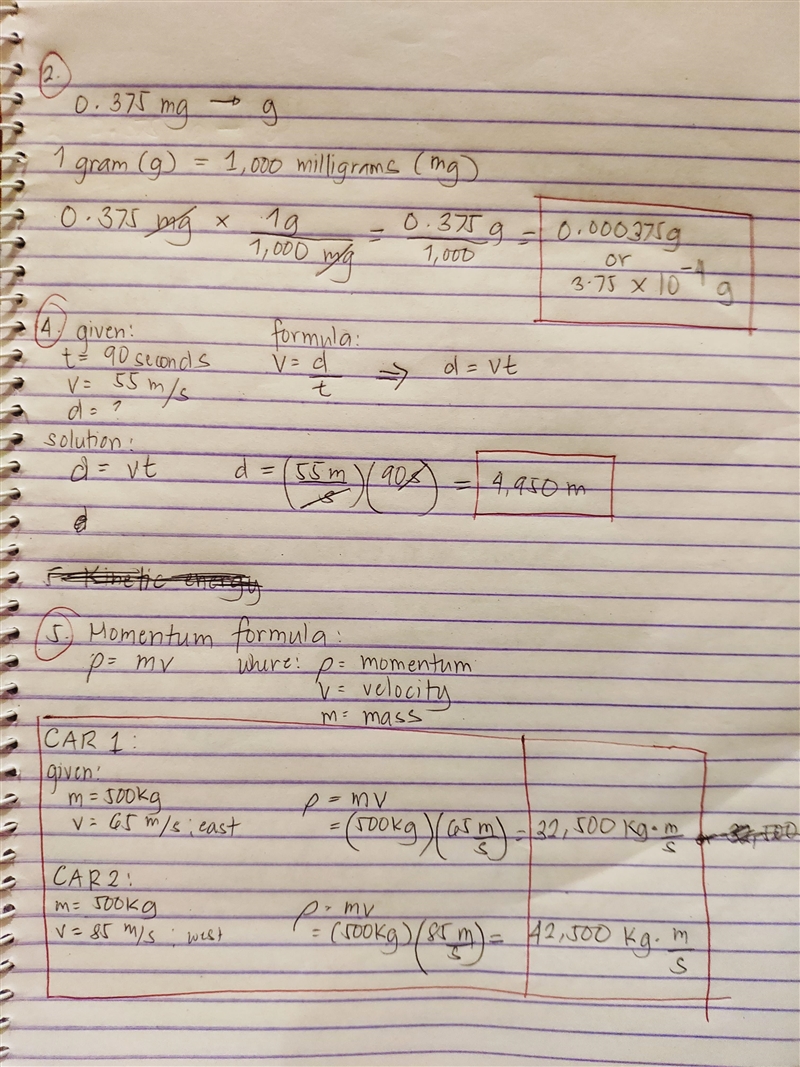 2.
0.375 mg → g
1 gram (g) = 1,000 milligrams (mg)
0.375 mg × 1g/1,000 mg = 0.375g/1,000 = 0.000375g
or
3.75 × 10⁻⁴ g
4. given: formula:
t = 90 seconds v = d/t ⇒ d = vt
v = 55 m/s
d = ?
solution:
d = vt d = (55m/s)(90s) = 4,950 m
d
5 Kinetic energy
5. Momentum formula:
ρ = mv where: ρ = momentum
v = velocity
m = mass
CAR 1:
given:
m = 500kg ρ = mv
v = 65 m/s ; east = (500kg)(65 m/s) = 32,500 kg·m/s or 32,500
CAR 2:
m = 500kg ρ = mv
v = 85 m/s ; west = (500kg)(85 m/s) = 42,500 kg·m/s